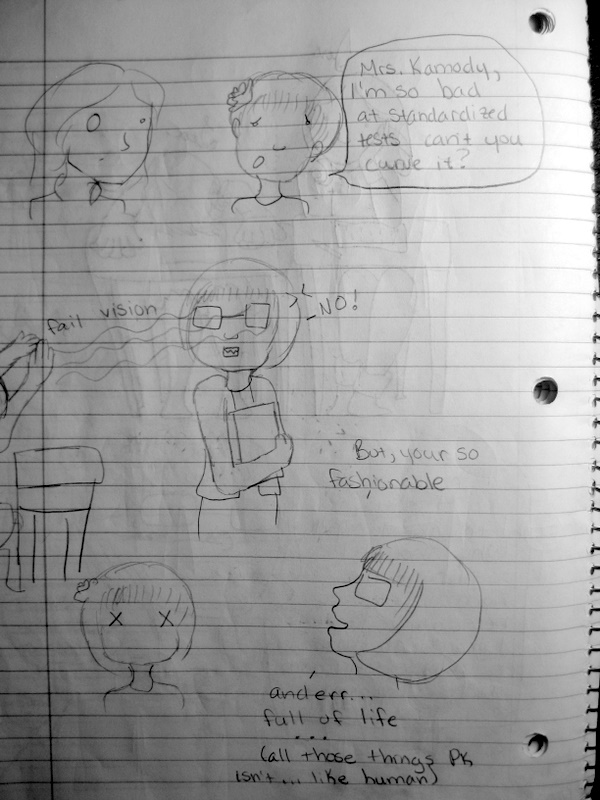 Mrs. Kamody,
I'm so bad
at standardized
tests can't you
curve it?
fail vision
NO!
But, your so
fashionable
and err...
full of life
...
(all those things PK
isn't... like human)